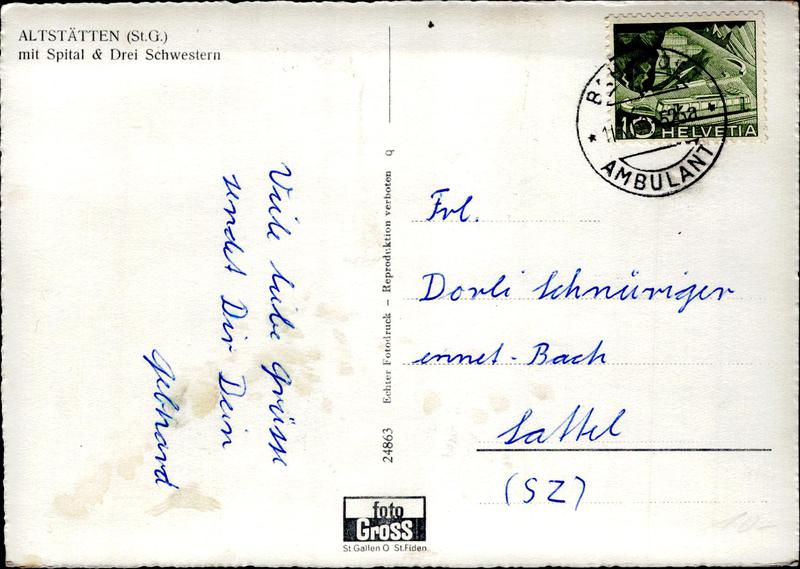 ALTSTÄTTEN (St.G.)
mit Spital & Drei Schwestern
Viele liebe Grüsse
sendet Dir Dein
Gebhard
Echter Fotodruck – Reproduktion verboten q
24863
foto
Gross
St. Gallen O St. Fiden
10 HELVETIA
AMBULANT
Frl.
Dorli Schnüriger
ennet-Bach
Sattel
(SZ)